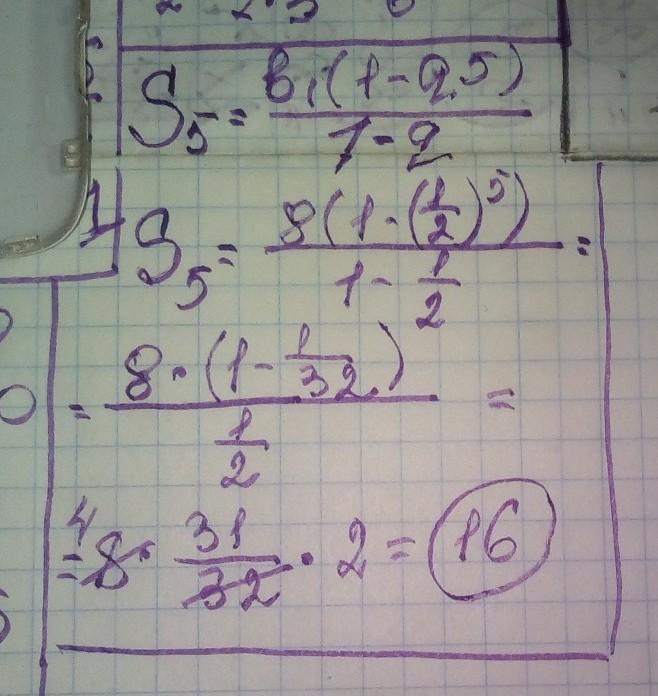 S₅ = b₁(1 - q5) / 1 - q
S₅ = 8(1 - (1/2)⁵) / 1 - 1/2 =
= 8 · (1 - 1/32) / 1/2 =
4
= 8 · 31/32 · 2 = 16